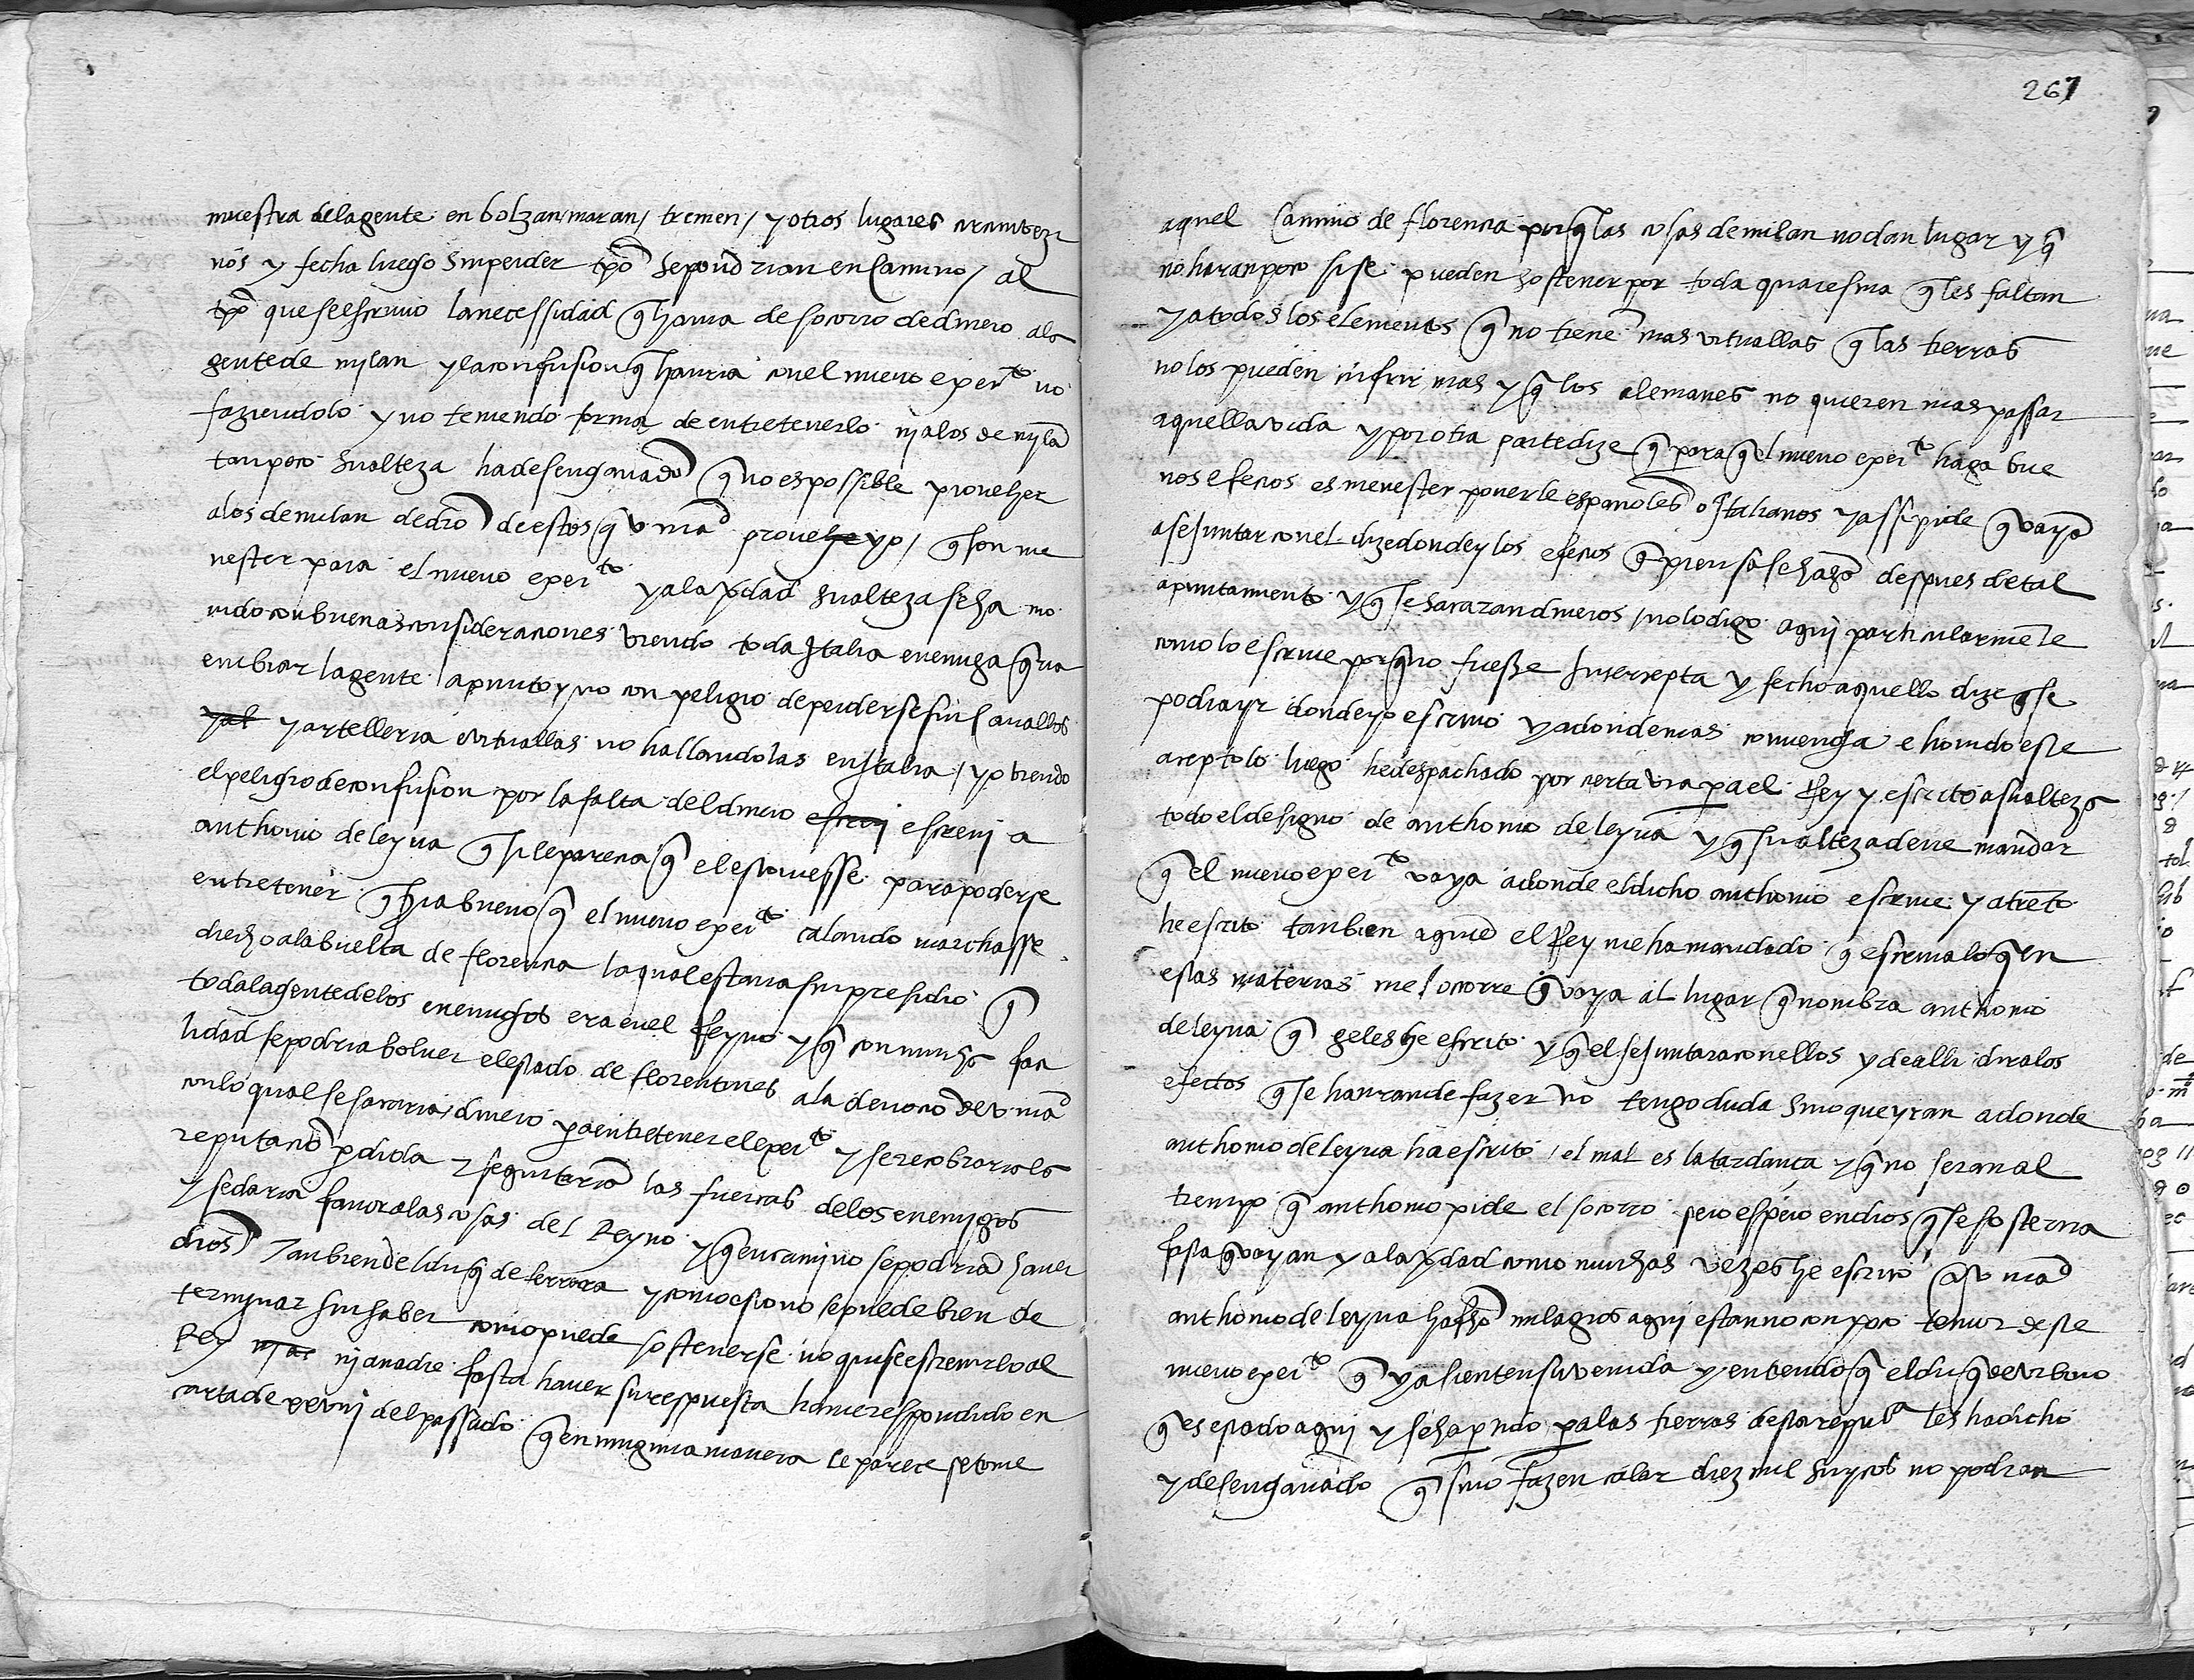 muestra dela gente en bolzan, maran, tremen, y otros lugares circunvezi
nos y fecha luego sin perder tpō se pondrian en camino, al
tpō que se escrivio la necessidad q̄ havia de socorro de dinero a la
gente de mylan y la confusion q̄ havria con el nuevo exerto no
faziendolo y no teniendo forma de entretenerlo ny a los de mylā
tanpoco su alteza ha desenganado q̄ no es possible proveher
a los de milan de dro de estos q̄ v. mad prove yo, q̄ son me
nester para el nuevo exerto y a la xdad su alteza se ha mo
vido con buenas consideraciones viendo toda Italia enemiga q̄ria
embiar la gente apunto y no con peligro de perderse sin cavallos
y artelleria e vituallas no hallandolas en Italia, yo viendo
el peligro de confusion por la falta del dinero escrevj escrevj a
anthonio de leyva q̄ si le parecia q̄ el estoviesse para poderse
entretener q̄ sria bueno q̄ el nuevo exerto calando marchasse
drecho ala buelta de florencia la qual estava sin presidio q̄
toda la gente de los enemigos era en el Reyno y q̄ con mucha faci
lidad se podria bolver el estado de florentines a la devocio de v. mad
con lo qual se sacaria dinero pa entretener el exerto y se recobraria la
reputacio pdida y seguitaria las fuerzas de los enemygos
y se daria favor a las cosas del Reyno y q̄ en camino se podria haver
dros tambien del duq̄ de ferrara y como esto no se puede bien de
termynar sin saber como puede sostenerse no quise escrevirlo al
Rey ny a nadie fasta haver su respuesta hame respondido en
carta de xxvij del passado q̄ en ninguna manera le parece se tome
267
aquel camino de florencia porq̄ las cosas de milan no dan lugar y q̄
no haran poco si se pueden sostener por toda quaresma q̄ les faltan
ya todos los elementos q̄ no tiene mas vituallas q̄ las tierras
no los pueden cufrir mas y q̄ los alemanes no quieren mas passar
aquella vida y por otra parte dize q̄ para q̄ el nuevo exerto haga bue
nos efectos es menester ponerle espanoles o Italianos y assi pide q̄ vaya
a se juntar con el dize donde y los efectos q̄ piensa se haga despues de tal
apuntamiento y q̄ se sacaran dineros, no lo digo aquj particularmete
como lo escrive porq̄ no fuesse Intercepta y fecho aquello dize q̄ se
podra yr donde yo escrivo y a donde mas convenga e havido este
acepto lo luego he despachado por cierta via pa el Rey y escrito a su alteza
todo el designo de anthonio de leyva y q̄ su alteza deve mandar
q̄ el nuevo exerto vaya a donde el dicho anthonio escrive y a treto
he escrito tanbien aquie el Rey me ha mandado q̄ escriva lo q̄ en
estas materias me ocorre q̄ vaya al lugar q̄ nombra anthonio
de leyva q̄ ge les he escrito y q̄ el se juntara con ellos y de alli dira los
efectos q̄ se havran de fazer no tengo duda sino que yran a donde
anthonio de leyva ha escrito, el mal es la tardança y q̄ no seran al
tiempo q̄ anthonio pide el socorro pero espero en dios q̄ se sosterna
fasta q̄ vayan y a la xdad como muchas vezes he escrito a v. mad
anthonio de leyva ha fecho milagros aquj estan no con poco temor deste
nuevo exerto q̄ ya sienten su venida y entiendo q̄ el duq̄ de vrbino
q̄ es estado aquj y se ha ptido pa las tierras desta republa les ha dicho
y desenganado q̄ sino fazen calar diez mil suyços no podran